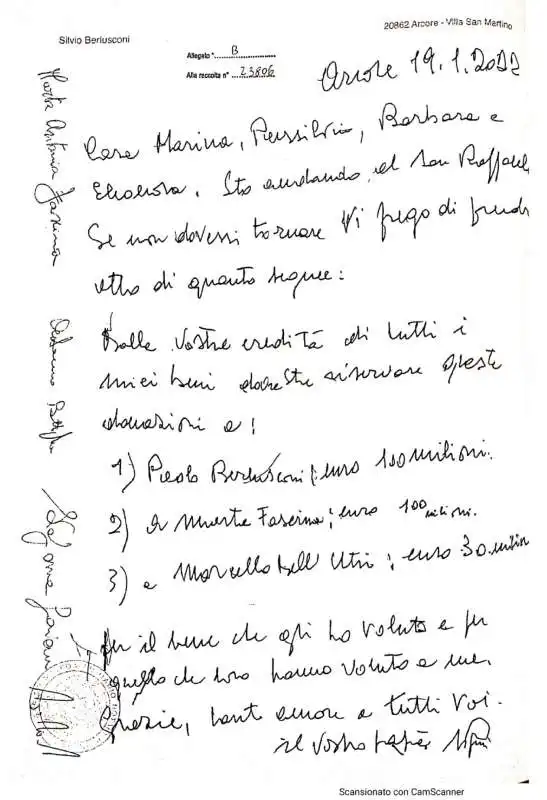 Silvio Berlusconi
20862 Arcore - Villa San Martino
Allegato "B
Alla raccolta n° 23806
Arcore 19.1.2022
Cara Marina, Piersilvio, Barbara e
Eleonora, Sto andando al San Raffaele
Se non dovessi tornare Vi prego di prendere
atto di quanto segue:
Dalle Vostre eredità di tutti i
miei beni dovreste riservare queste
donazioni a:
1) Paolo Berlusconi; euro 100 milioni.
2) a Marta Fascina; euro 100 milioni.
3) a Marcello Dell'Utri; euro 30 milioni
per il bene che gli ho voluto e per
quello che loro hanno voluto a me.
Grazie, tanto amore a tutti Voi.
il Vostro papà
Marta Antonia Fascina
Scansionato con CamScanner